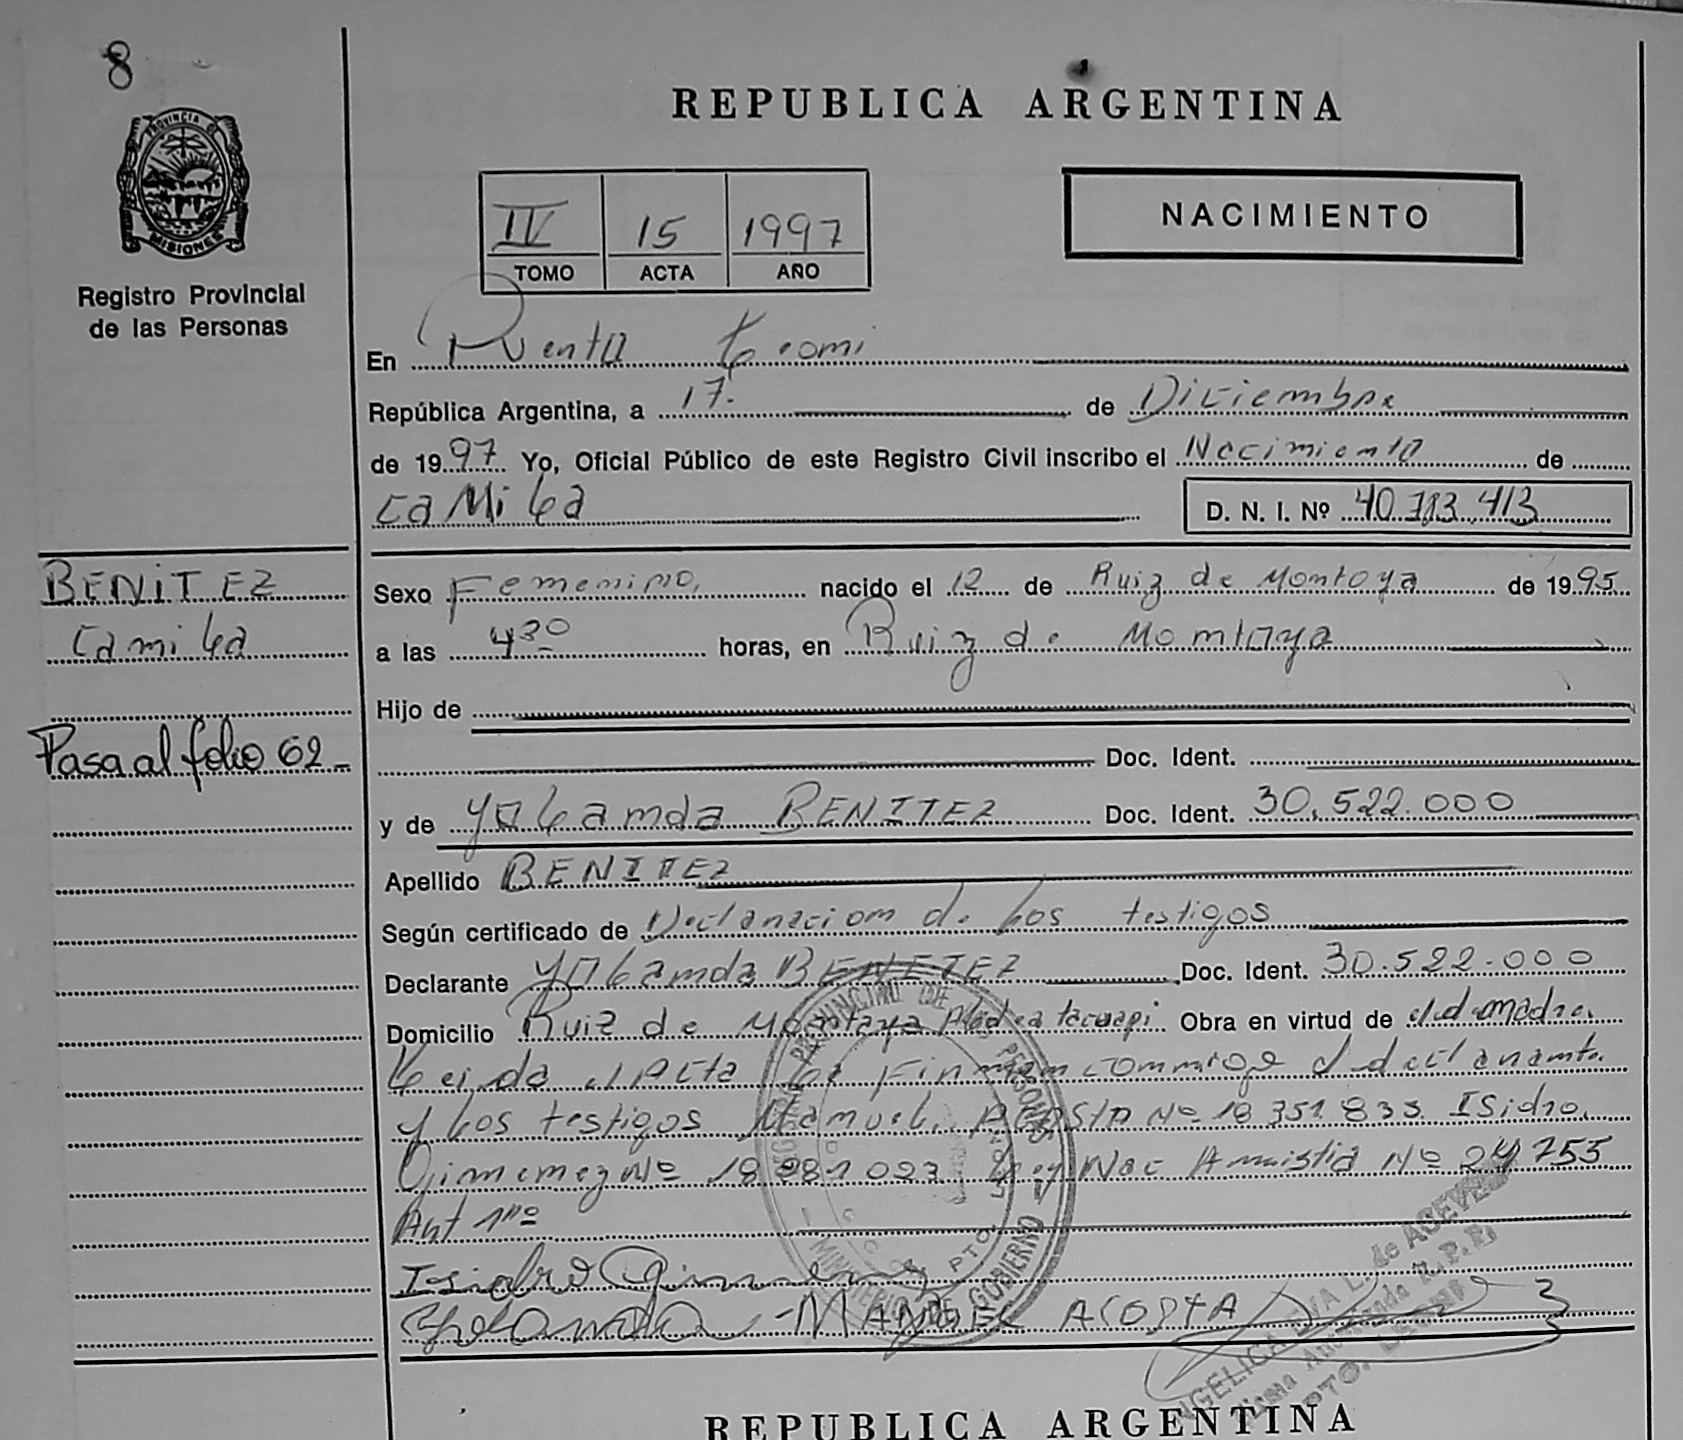 8
REPUBLICA ARGENTINA
PROVINCIA DE
MISIONES
Registro Provincial
de las Personas
IV 15 1997
TOMO ACTA AÑO
NACIMIENTO
En Puerto Leoni
República Argentina, a 17. de Diciembre
de 1997 Yo, Oficial Público de este Registro Civil inscribo el Nacimiento de
CaMila
D. N. I. Nº 40.783.413
BENITEZ
Camila
Pasa al folio 62-
Sexo Femenino, nacido el 12 de Ruiz de Montoya de 1995
a las 4 30 horas, en Ruiz de Montoya
Hijo de
Doc. Ident.
y de Yolamda BENITEZ Doc. Ident. 30.522.000
Apellido BENITEZ
Según certificado de Declanaciom de los testigos
Declarante Yolamda BENETEZ Doc. Ident. 30.522.000
Domicilio Ruiz de Montaya Aldea tacuapi Obra en virtud de
Leida el Acta la Finmam commigo el declanamte
y los testigos Mamuel ACOSTA Nº 18 351 833 Isidro
Gimemez Nº 18 881 093 Ley Nac Amistia Nº 24 755
Art 1ro
Isidro Gimenez
Yolanda - MANUEL ACOSTA
REGISTRO PROVINCIAL DE LAS PERSONAS
MINISTERIO DE GOBIERNO
PTO. LEONI
ANGELICA EVA L. de ACEVEDO
PTO. LEONI
REPUBLICA ARGENTINA